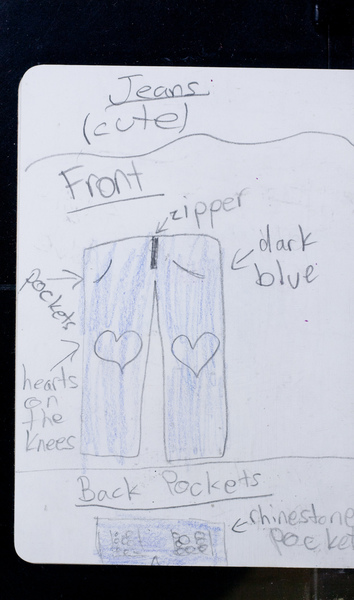 Jeans
(cute)
Front
zipper
dark
blue
pockets
hearts
on
the
knees
Back Pockets
rhinestone
pocket